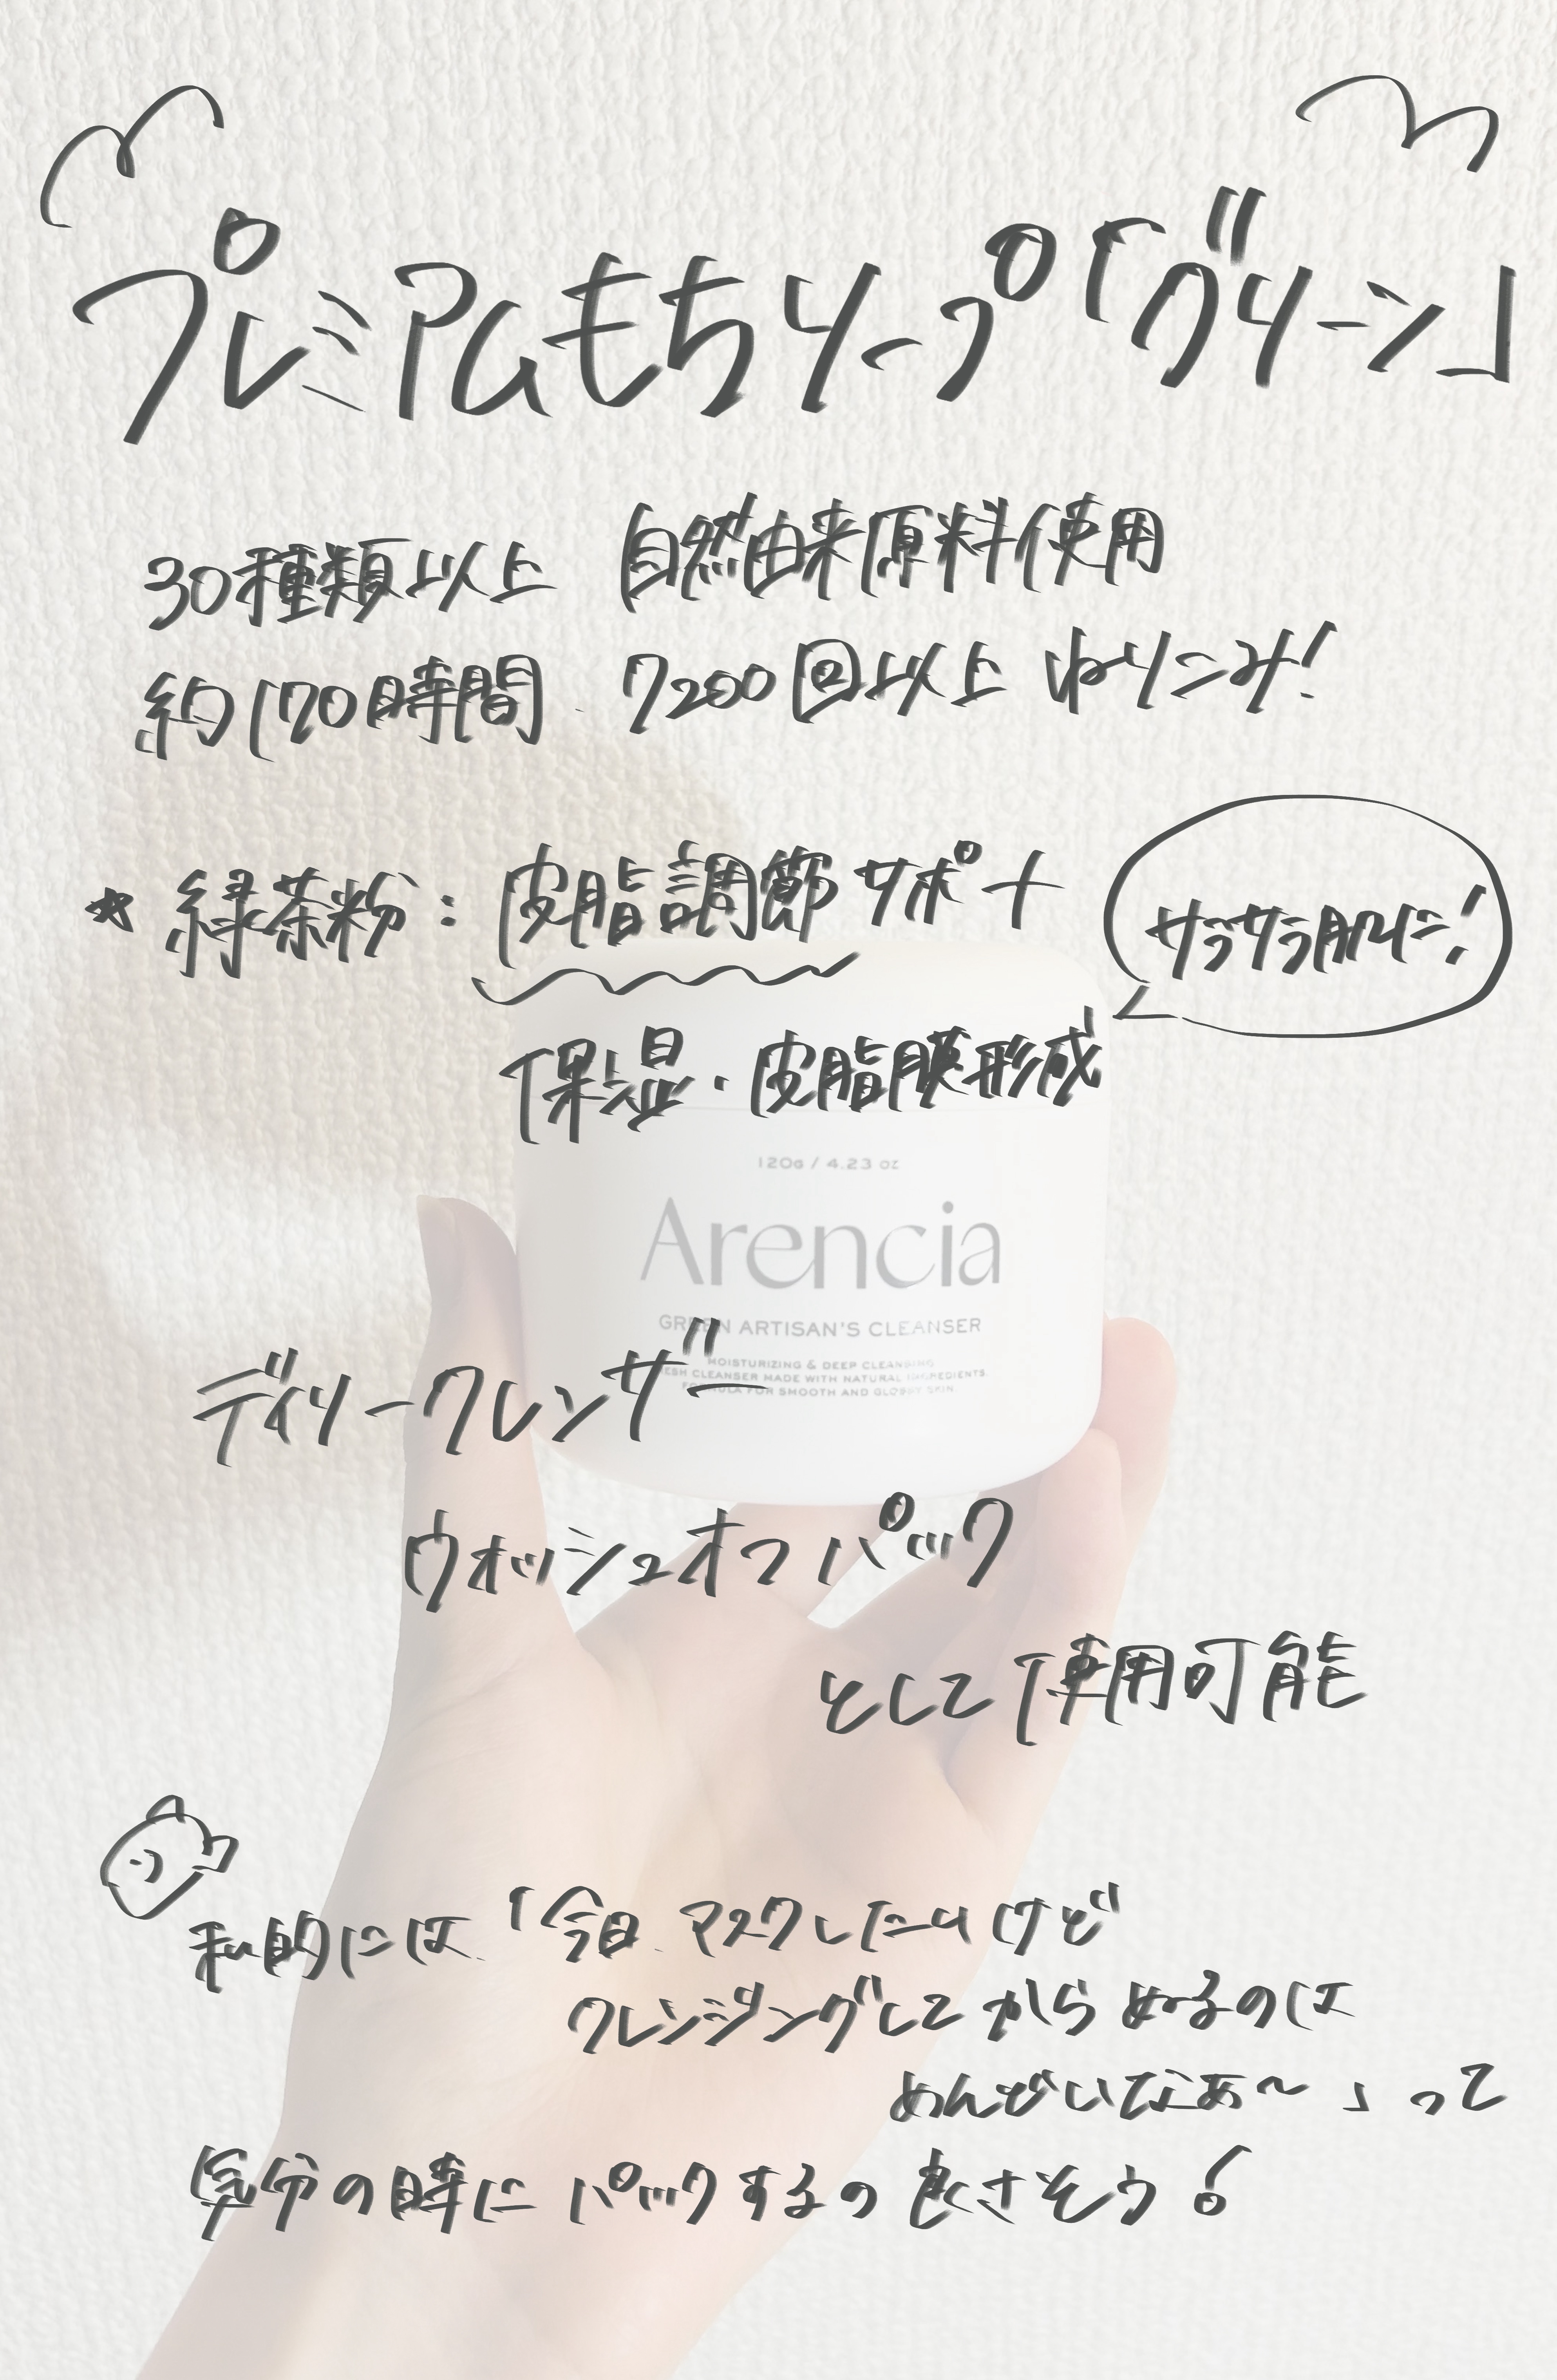 プレミアムもちソープ「グリーン」
30種類以上 自然由来原料使用
約170時間 7200回以上 ねりこみ!
* 緑茶粉:皮脂調節サポート
サラサラ肌に!
保湿・皮脂膜形成
120g / 4.23 oz
Arencia
GREEN ARTISAN'S CLEANSER
MOISTURIZING & DEEP CLEANSING
FRESH CLEANSER MADE WITH NATURAL INGREDIENTS
FORMULA FOR SMOOTH AND GLOSSY SKIN
デイリークレンザー
ウォッシュオフパック
として使用可能
私的には「今日マスクしたいけど
クレンジングしてからぬるのは
めんどいなあ〜」って
気分の時にパックするの良さそう!